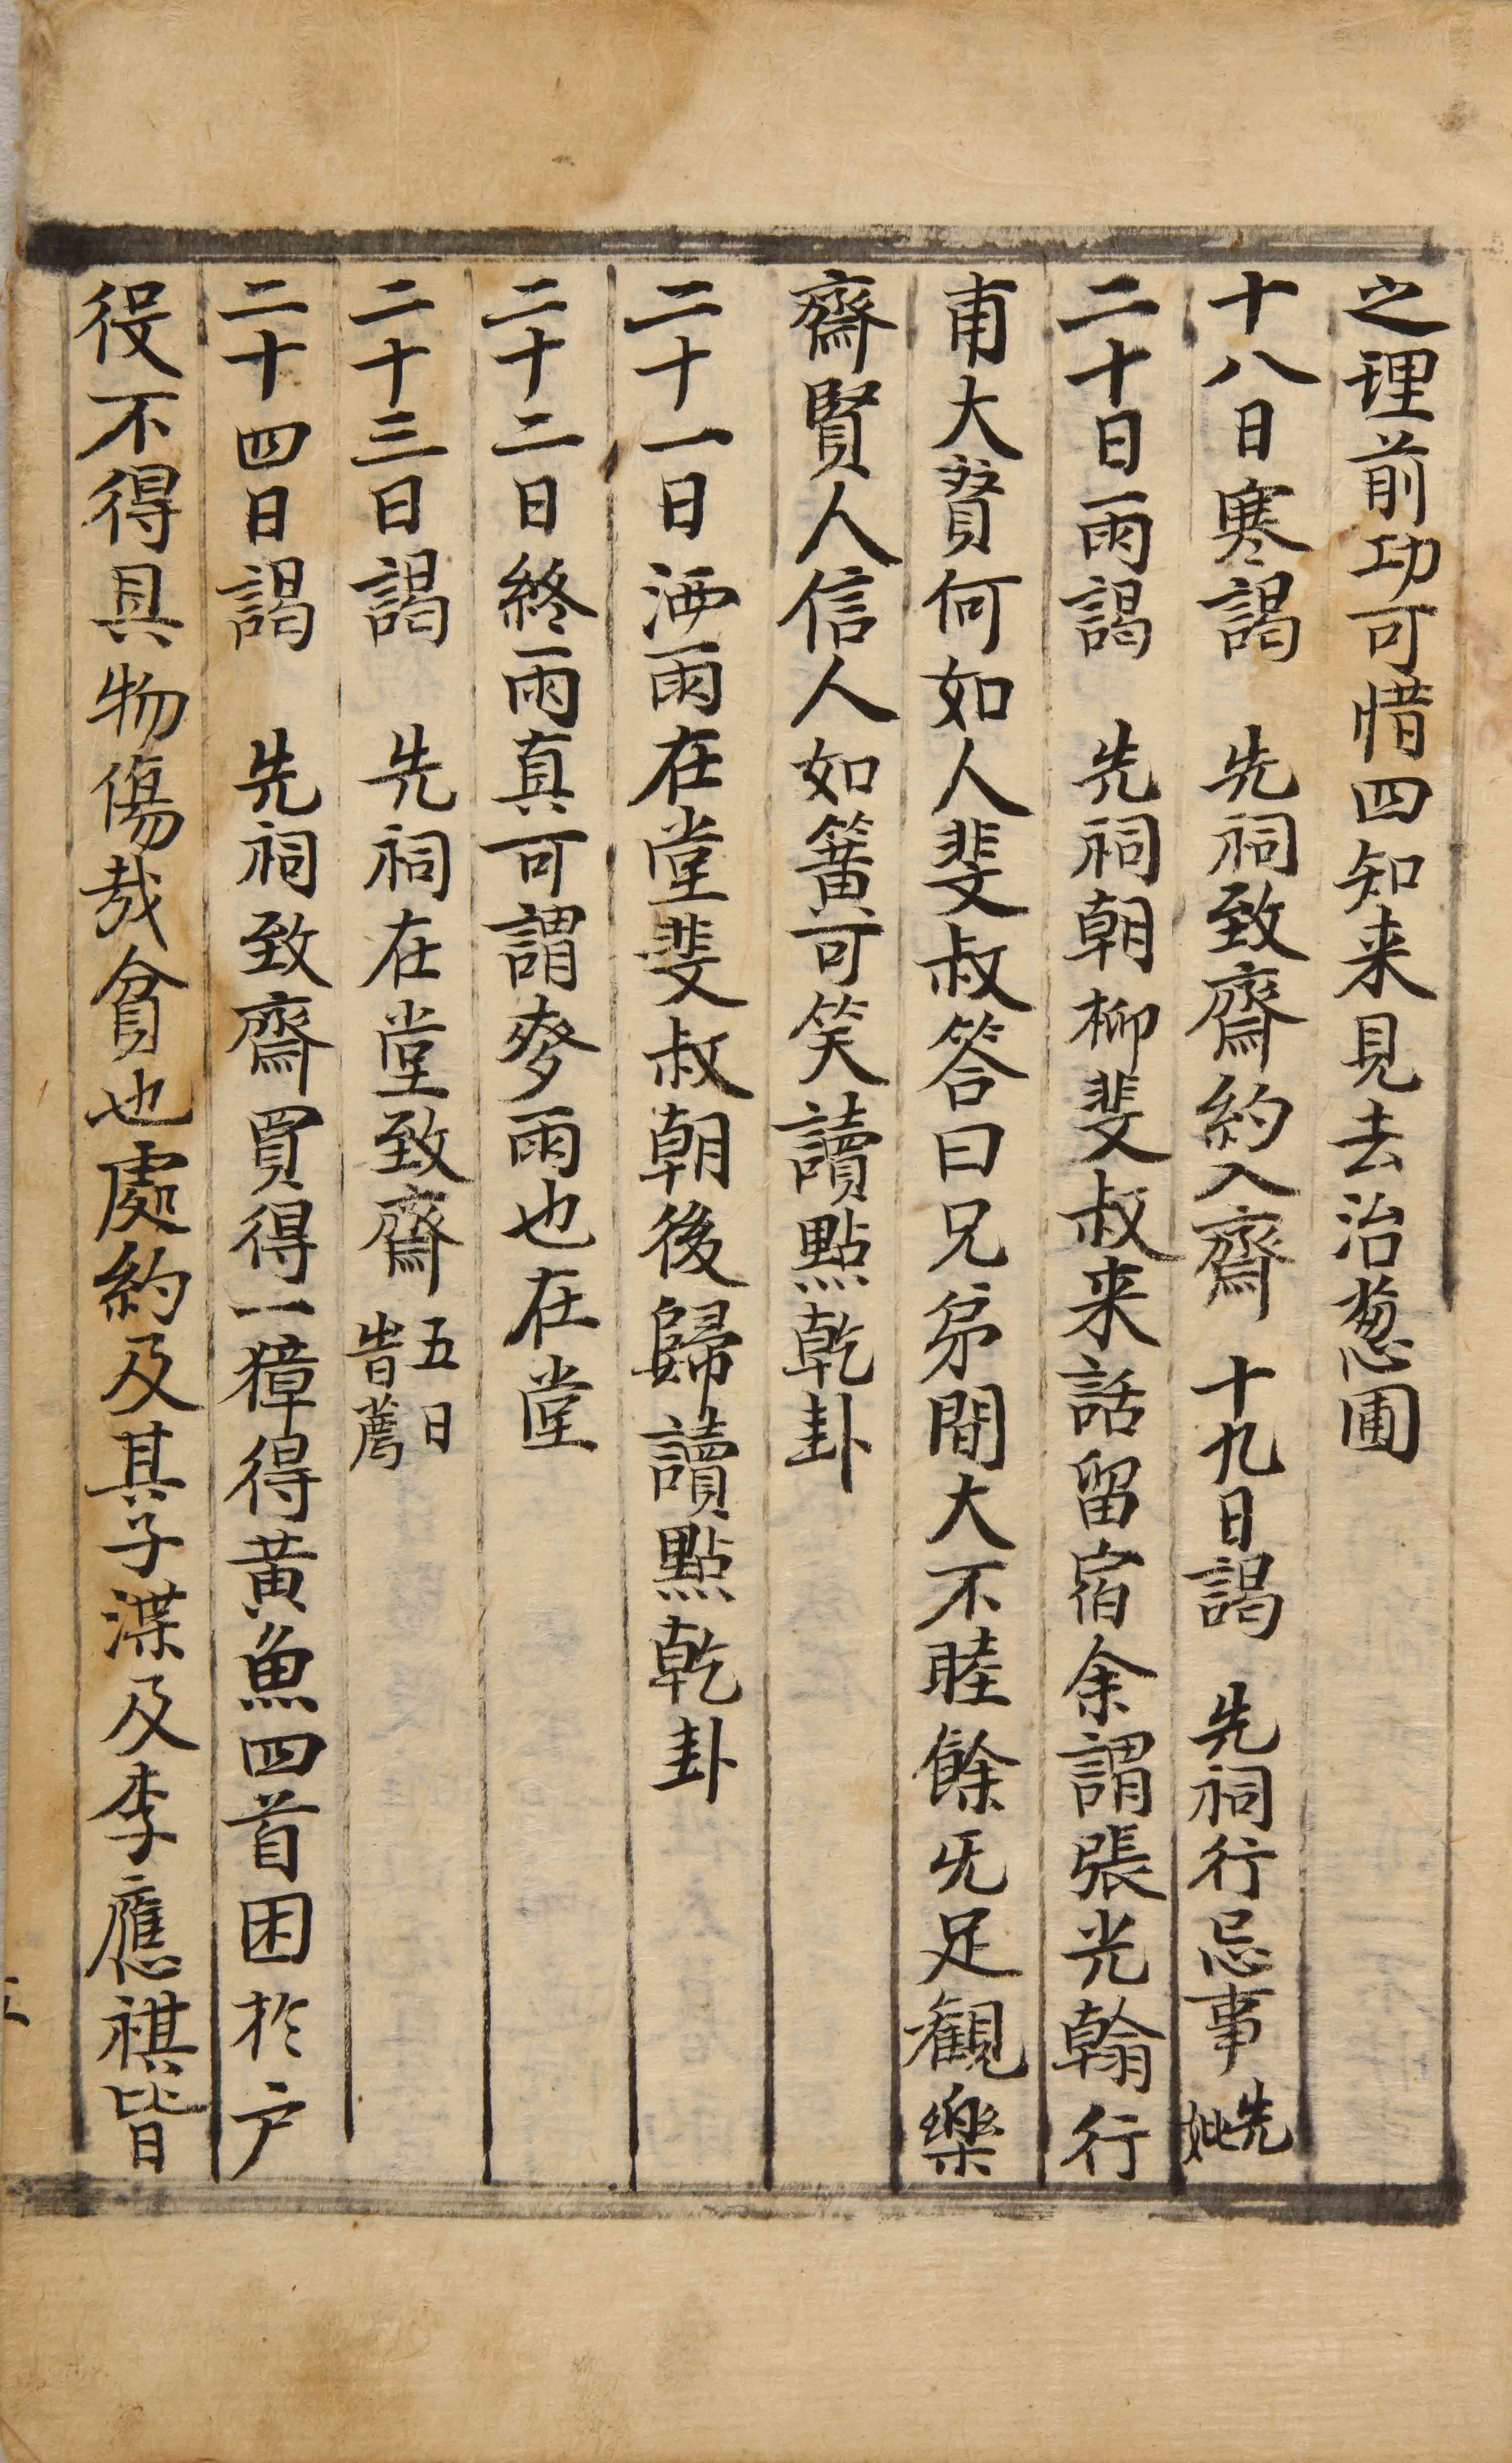 之理前功可惜四知来見去治葱圃
十八日寒謁　先祠致齋約入齋　十九日謁　先祠行忌事先妣
二十日雨謁　先祠朝柳斐叔来話留宿余謂張光翰行
甫大賢何如人斐叔答曰兄弟間大不睦餘旡足觀樂
齋賢人信人如簧可笑讀點乾卦
二十一日洒雨在堂斐叔朝後歸讀點乾卦
二十二日終雨真可謂麥雨也在堂
二十三日謁　先祠在堂致齋五日皆薦
二十四日謁　先祠致齋買得一獐得黃魚四首困於户
役不得具物傷哉貧也處約及其子渫及李應祺皆